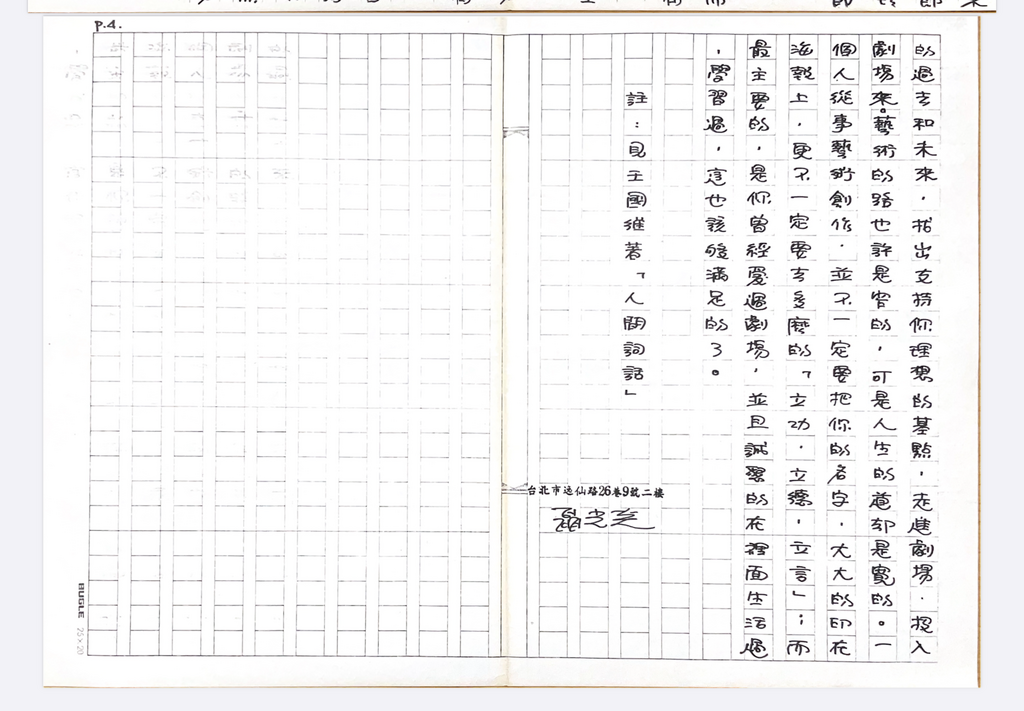 P.4.
的過去和未來，找出支持你理想的基點，走進劇場，投入
劇場來。藝術的路也許是窄的，可是人生的道却是寬的。一
個人從事藝術創作，並不一定要把你的名字，大大的印在
海報上，更不一定要去多麼的「立功，立德，立言」；而
最主要的，是你曾經愛過劇場，並且誠懇的在裡面生活過
，學習過，這也該夠滿足的了。
註：見王國維著「人間詞話」
台北市迅仙路26巷9號二樓
聶光炎
BUGLE 25×20